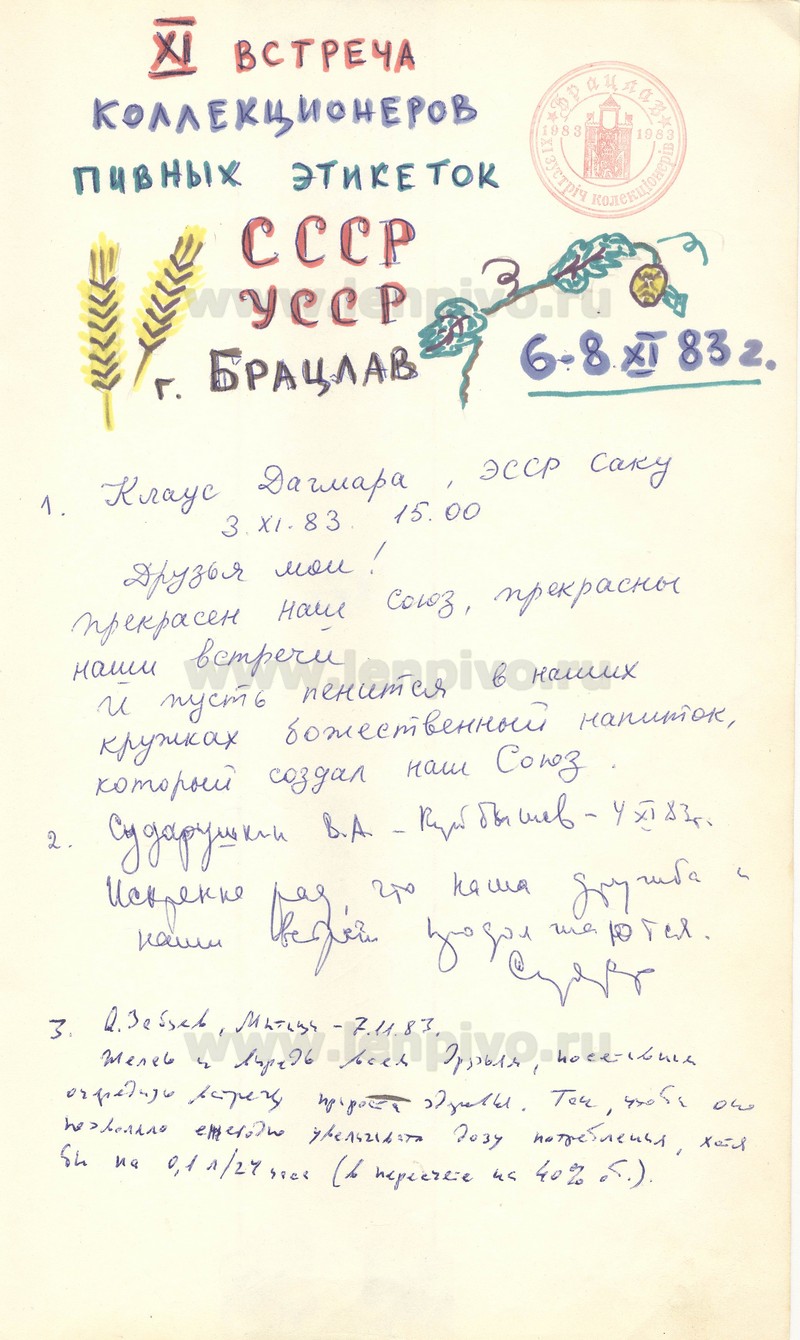 XI ВСТРЕЧА
КОЛЛЕКЦИОНЕРОВ
ПИВНЫХ ЭТИКЕТОК
СССР
УССР
г. БРАЦЛАВ
6-8 XI 83 г.
Брацлав
1983 1983
XI зустріч колекціонерів
www.lenpivo.ru
1. Клаус Дагмара, ЭССР Саку
3.XI.83. 15.00
Друзья мои!
прекрасен наш союз, прекрасны
наши встречи.
www.lenpivo.ru
И пусть пенится в наших
кружках божественный напиток,
который создал наш Союз.
2. Сударушкин В.А. – Куйбышев – 4 XI 83г.
Искренне рад, что наша дружба и
наши встречи продолжаются.
3. А. Зайцев, Мытищи – 7.11.83.
www.lenpivo.ru
Желаю и впредь всем друзьям, посетившим
очередную встречу прироста здоровья. Так, чтобы оно
позволяло ежегодно увеличивать дозу потребления, хотя
бы на 0,1 л/24 часа (в пересчете на 40% об.).